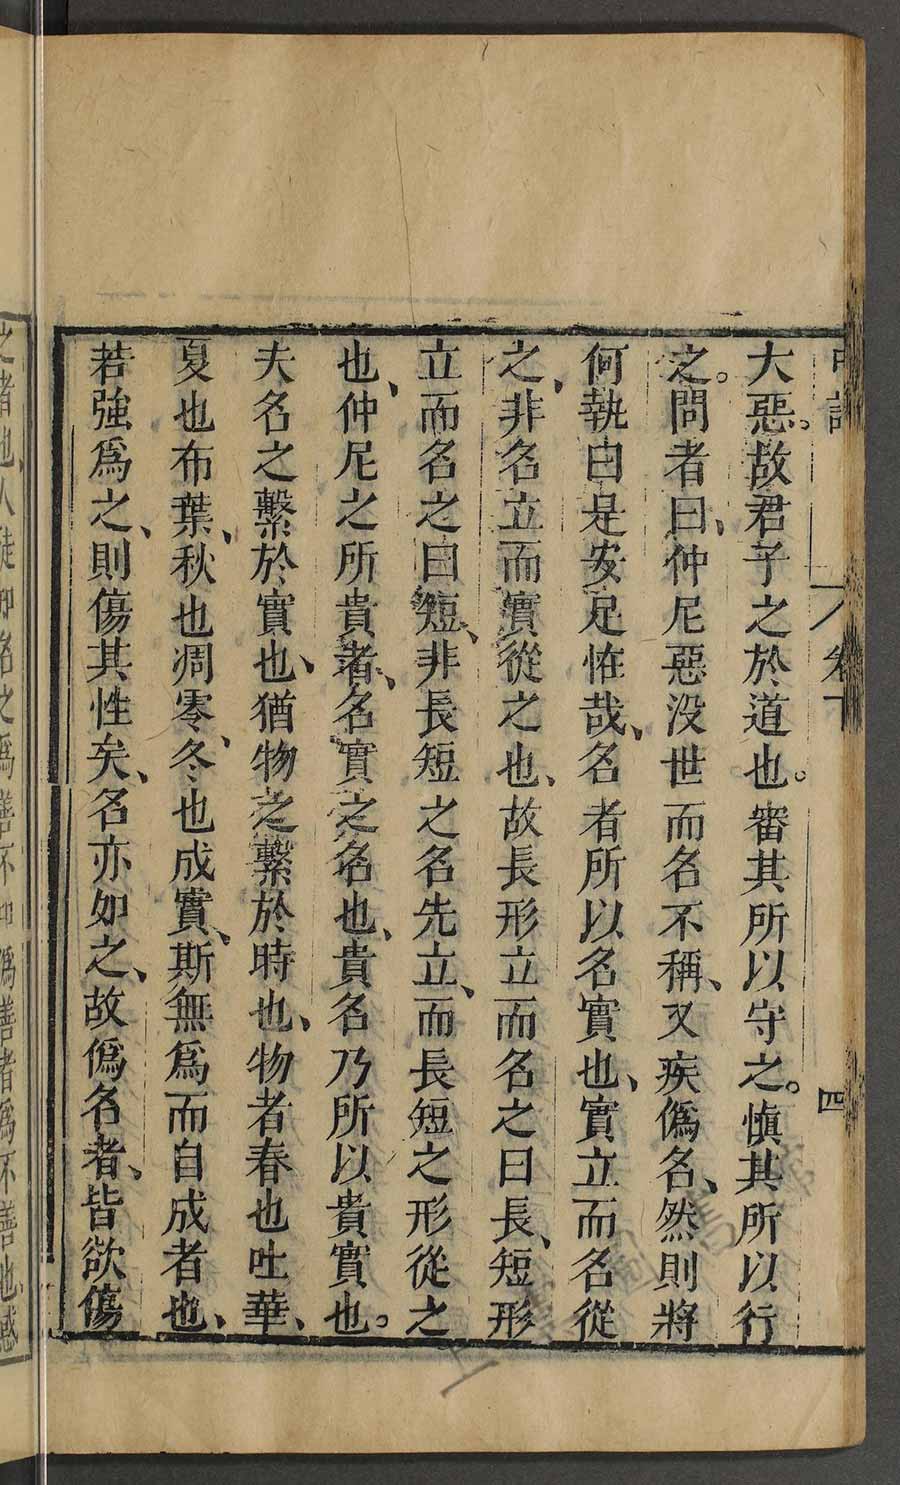 大惡。故君子之於道也。審其所以守之。慎其所以行
之。問者曰、仲尼惡没世而名不稱、又疾僞名、然則將
何執曰是安足怪哉、名者所以名實也、實立而名從
之、非名立而實從之也、故長形立而名之曰長、短形
立而名之曰短、非長短之名先立、而長短之形從之
也、仲尼之所貴者、名實之名也、貴名乃所以貴實也。
夫名之繫於實也、猶物之繫於時也、物者春也吐華、
夏也布葉、秋也凋零、冬也成實、斯無爲而自成者也、
若強爲之、則傷其性矣、名亦如之、故僞名者、皆欲傷
卷下
四